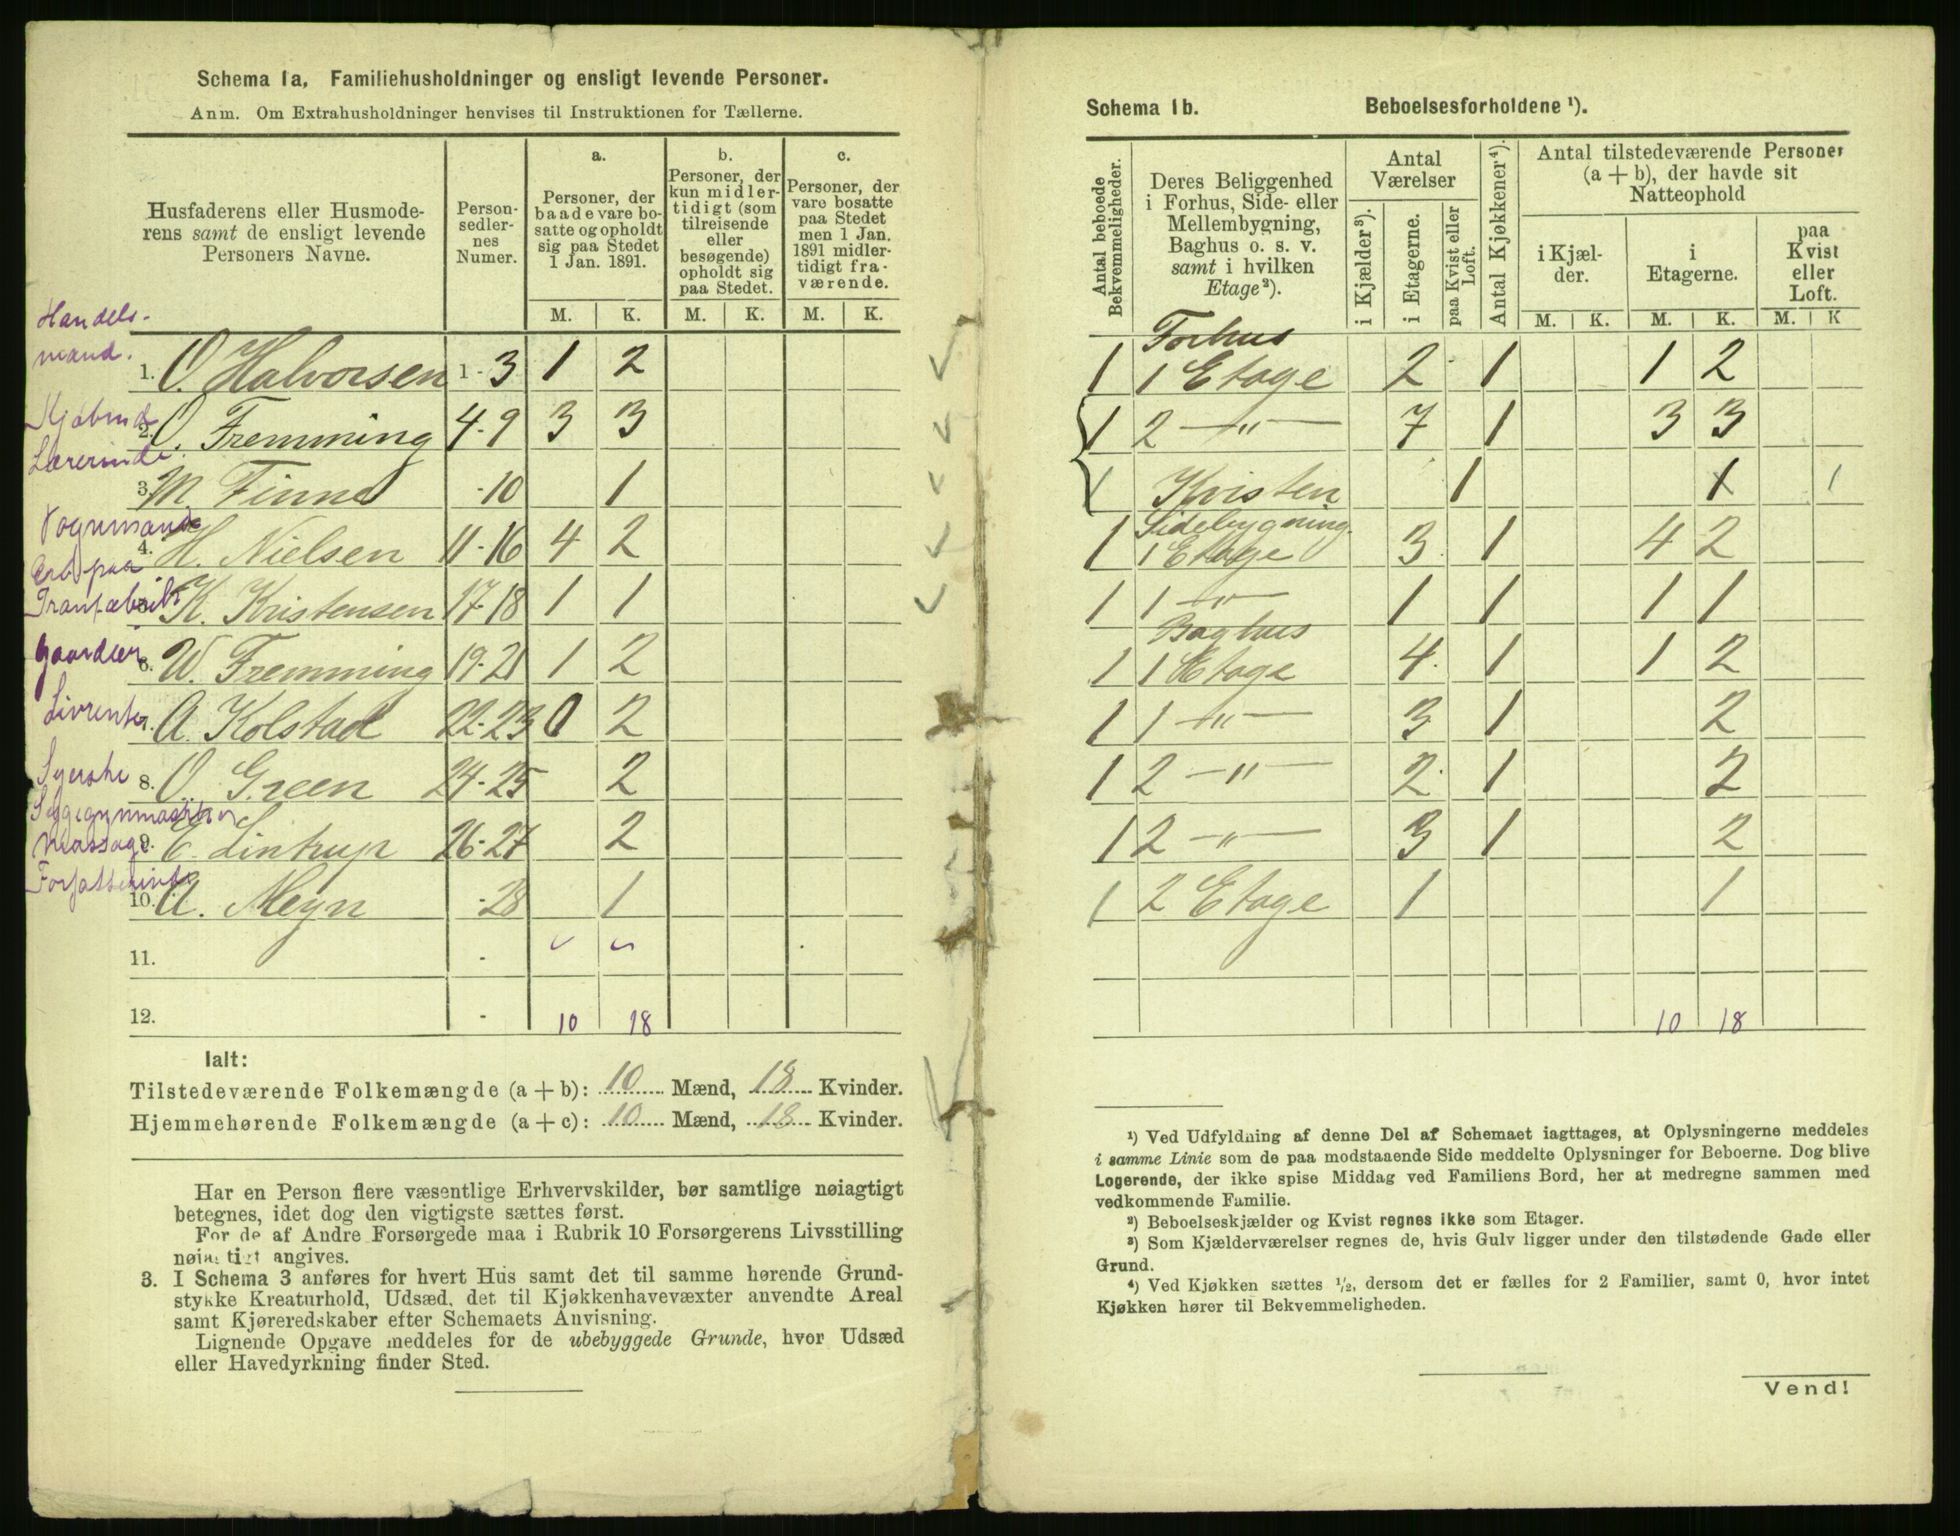 Schema 1a, Familiehusholdninger og ensligt levende Personer.
Anm. Om Extrahusholdninger henvises til Instruktionen for Tællerne.
Husfaderens eller Husmode-
rens samt de ensligt levende
Personers Navne.
Person-
sedler-
nes
Numer.
a.
Personer, der
baade vare bo-
satte og opholdt
sig paa Stedet
1 Jan. 1891.
b.
Personer, der
kun midler-
tidigt (som
tilreisende
eller
besøgende)
opholdt sig
paa Stedet.
c.
Personer, der
vare bosatte
paa Stedet
men 1 Jan.
1891 midler-
tidigt fra-
værende.
M. K. M. K. M. K.
Handels-
mand.
1. O. Halvorsen 1-3 1 2
2. O. Fremming 4-9 3 3
Lærerinde
3. M. Finne -10 1
Vognmand
4. H. Nielsen 11-16 4 2
Arb paa
Tranfabrik
K. Kristensen 17-18 1 1
Gaardeier
6. W. Fremming 19-21 1 2
A. Kolstad 22-23 0 2
Syerske
8. O. Green 24-25 2
Massage
9. C. Lintrup 26-27 2
Forfatterinde
10. A. Meyn -28 1
11. -
12. - 10 18
Ialt:
Tilstedeværende Folkemængde (a + b): 10 Mænd, 18 Kvinder.
Hjemmehørende Folkemængde (a + c): 10 Mænd, 18 Kvinder.
Har en Person flere væsentlige Erhvervskilder, bør samtlige nøiagtigt
betegnes, idet dog den vigtigste sættes først.
For de af Andre Forsørgede maa i Rubrik 10 Forsørgerens Livsstilling
nøiagtigt angives.
3. I Schema 3 anføres for hvert Hus samt det til samme hørende Grund-
stykke Kreaturhold, Udsæd, det til Kjøkkenhavevæxter anvendte Areal
samt Kjøreredskaber efter Schemaets Anvisning.
Lignende Opgave meddeles for de ubebyggede Grunde, hvor Udsæd
eller Havedyrkning finder Sted.
Schema 1b. Beboelsesforholdene ¹).
Antal beboede
Bekvemmeligheder.
Deres Beliggenhed
i Forhus, Side- eller
Mellembygning,
Baghus o. s. v.
samt i hvilken
Etage²).
Antal
Værelser
i Kjælder³).
i Etagerne.
paa Kvist eller
Loft.
Antal Kjøkkener⁴).
Antal tilstedeværende Personer
(a + b), der havde sit
Natteophold
i Kjæl-
der.
i
Etagerne.
paa
Kvist
eller
Loft.
M. K. M. K. M. K
Forhus
1 1 Etage 2 1 1 2
1 2 —"— 7 1 3 3
1 Kvisten 1 1 1
Sidebygning.
1 1 Etage 3 1 4 2
1 1 —"— 1 1 1 1
Baghus
1 1 Etage 4 1 1 2
1 1 —"— 3 1 2
1 2 —"— 2 1 2
1 2 —"— 3 1 2
1 2 Etage 1 1
10 18
¹) Ved Udfyldning af denne Del af Schemaet iagttages, at Oplysningerne meddeles
i samme Linie som de paa modstaaende Side meddelte Oplysninger for Beboerne. Dog blive
Logerende, der ikke spise Middag ved Familiens Bord, her at medregne sammen med
vedkommende Familie.
²) Beboelseskjælder og Kvist regnes ikke som Etager.
³) Som Kjælderværelser regnes de, hvis Gulv ligger under den tilstødende Gade eller
Grund.
⁴) Ved Kjøkken sættes ¹/₂, dersom det er fælles for 2 Familier, samt 0, hvor intet
Kjøkken hører til Bekvemmeligheden.
Vend!